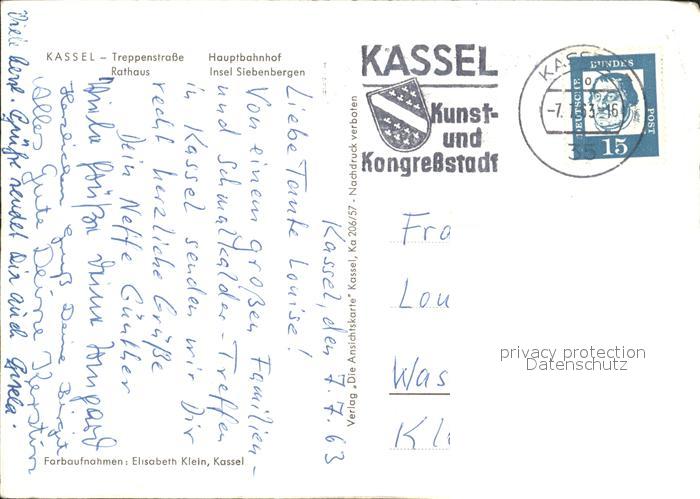 KASSEL – Treppenstraße Hauptbahnhof
Rathaus Insel Siebenbergen
KASSEL
Kunst-
und
Kongreßstadt
KASSEL
-7.7.63-16
35
DEUTSCHE BUNDES POST
15
Kassel, den 7.7.63
Liebe Tante Louise!
Von einem großen Familien-
und Schmalkalder-Treffen
in Kassel senden wir Dir
recht herzliche Grüße
Dein Neffe Günther
Viele Grüße Deine
Herzlichen Gruß Deine Birgit
Alles Gute Deine Kerstin
Viele herzl. Grüße sendet Dir auch Gisela.
Verlag „Die Ansichtskarte" Kassel, Ka 206/57 - Nachdruck verboten
Fra
Lou
Was
Kl
privacy protection
Datenschutz
Farbaufnahmen: Elisabeth Klein, Kassel